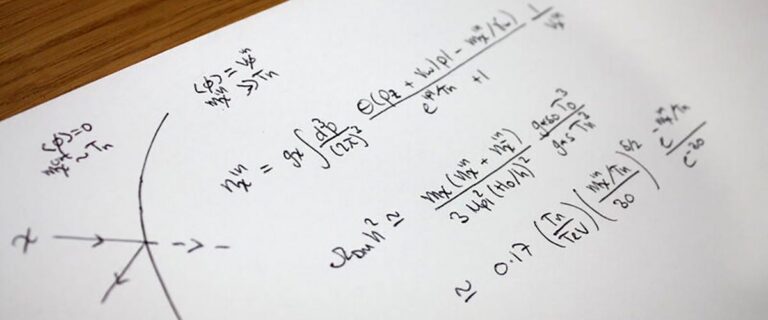 ⟨φ⟩=0
⟨φ⟩ = v_φ^in
m_χ^in ≫ T_n
χ
n_χ^in = g_χ ∫ d³p/(2π)³ Θ(p_z + v_w|p| − m_χ^in/γ_w) / (e^{|p|/T_n} + 1) 1/v_w
Ω_DM h² ≃ m_χ^in (n_χ^in + n_χ^in) / 3 M_pl² (H_0/h)² g_{*S0} T_0³ / g_{*S} T_n³
≃ 0.17 (T_n/TeV) ((m_χ^in/T_n)/30)^{5/2} e^{−m_χ^in/T_n} / e^{−30}